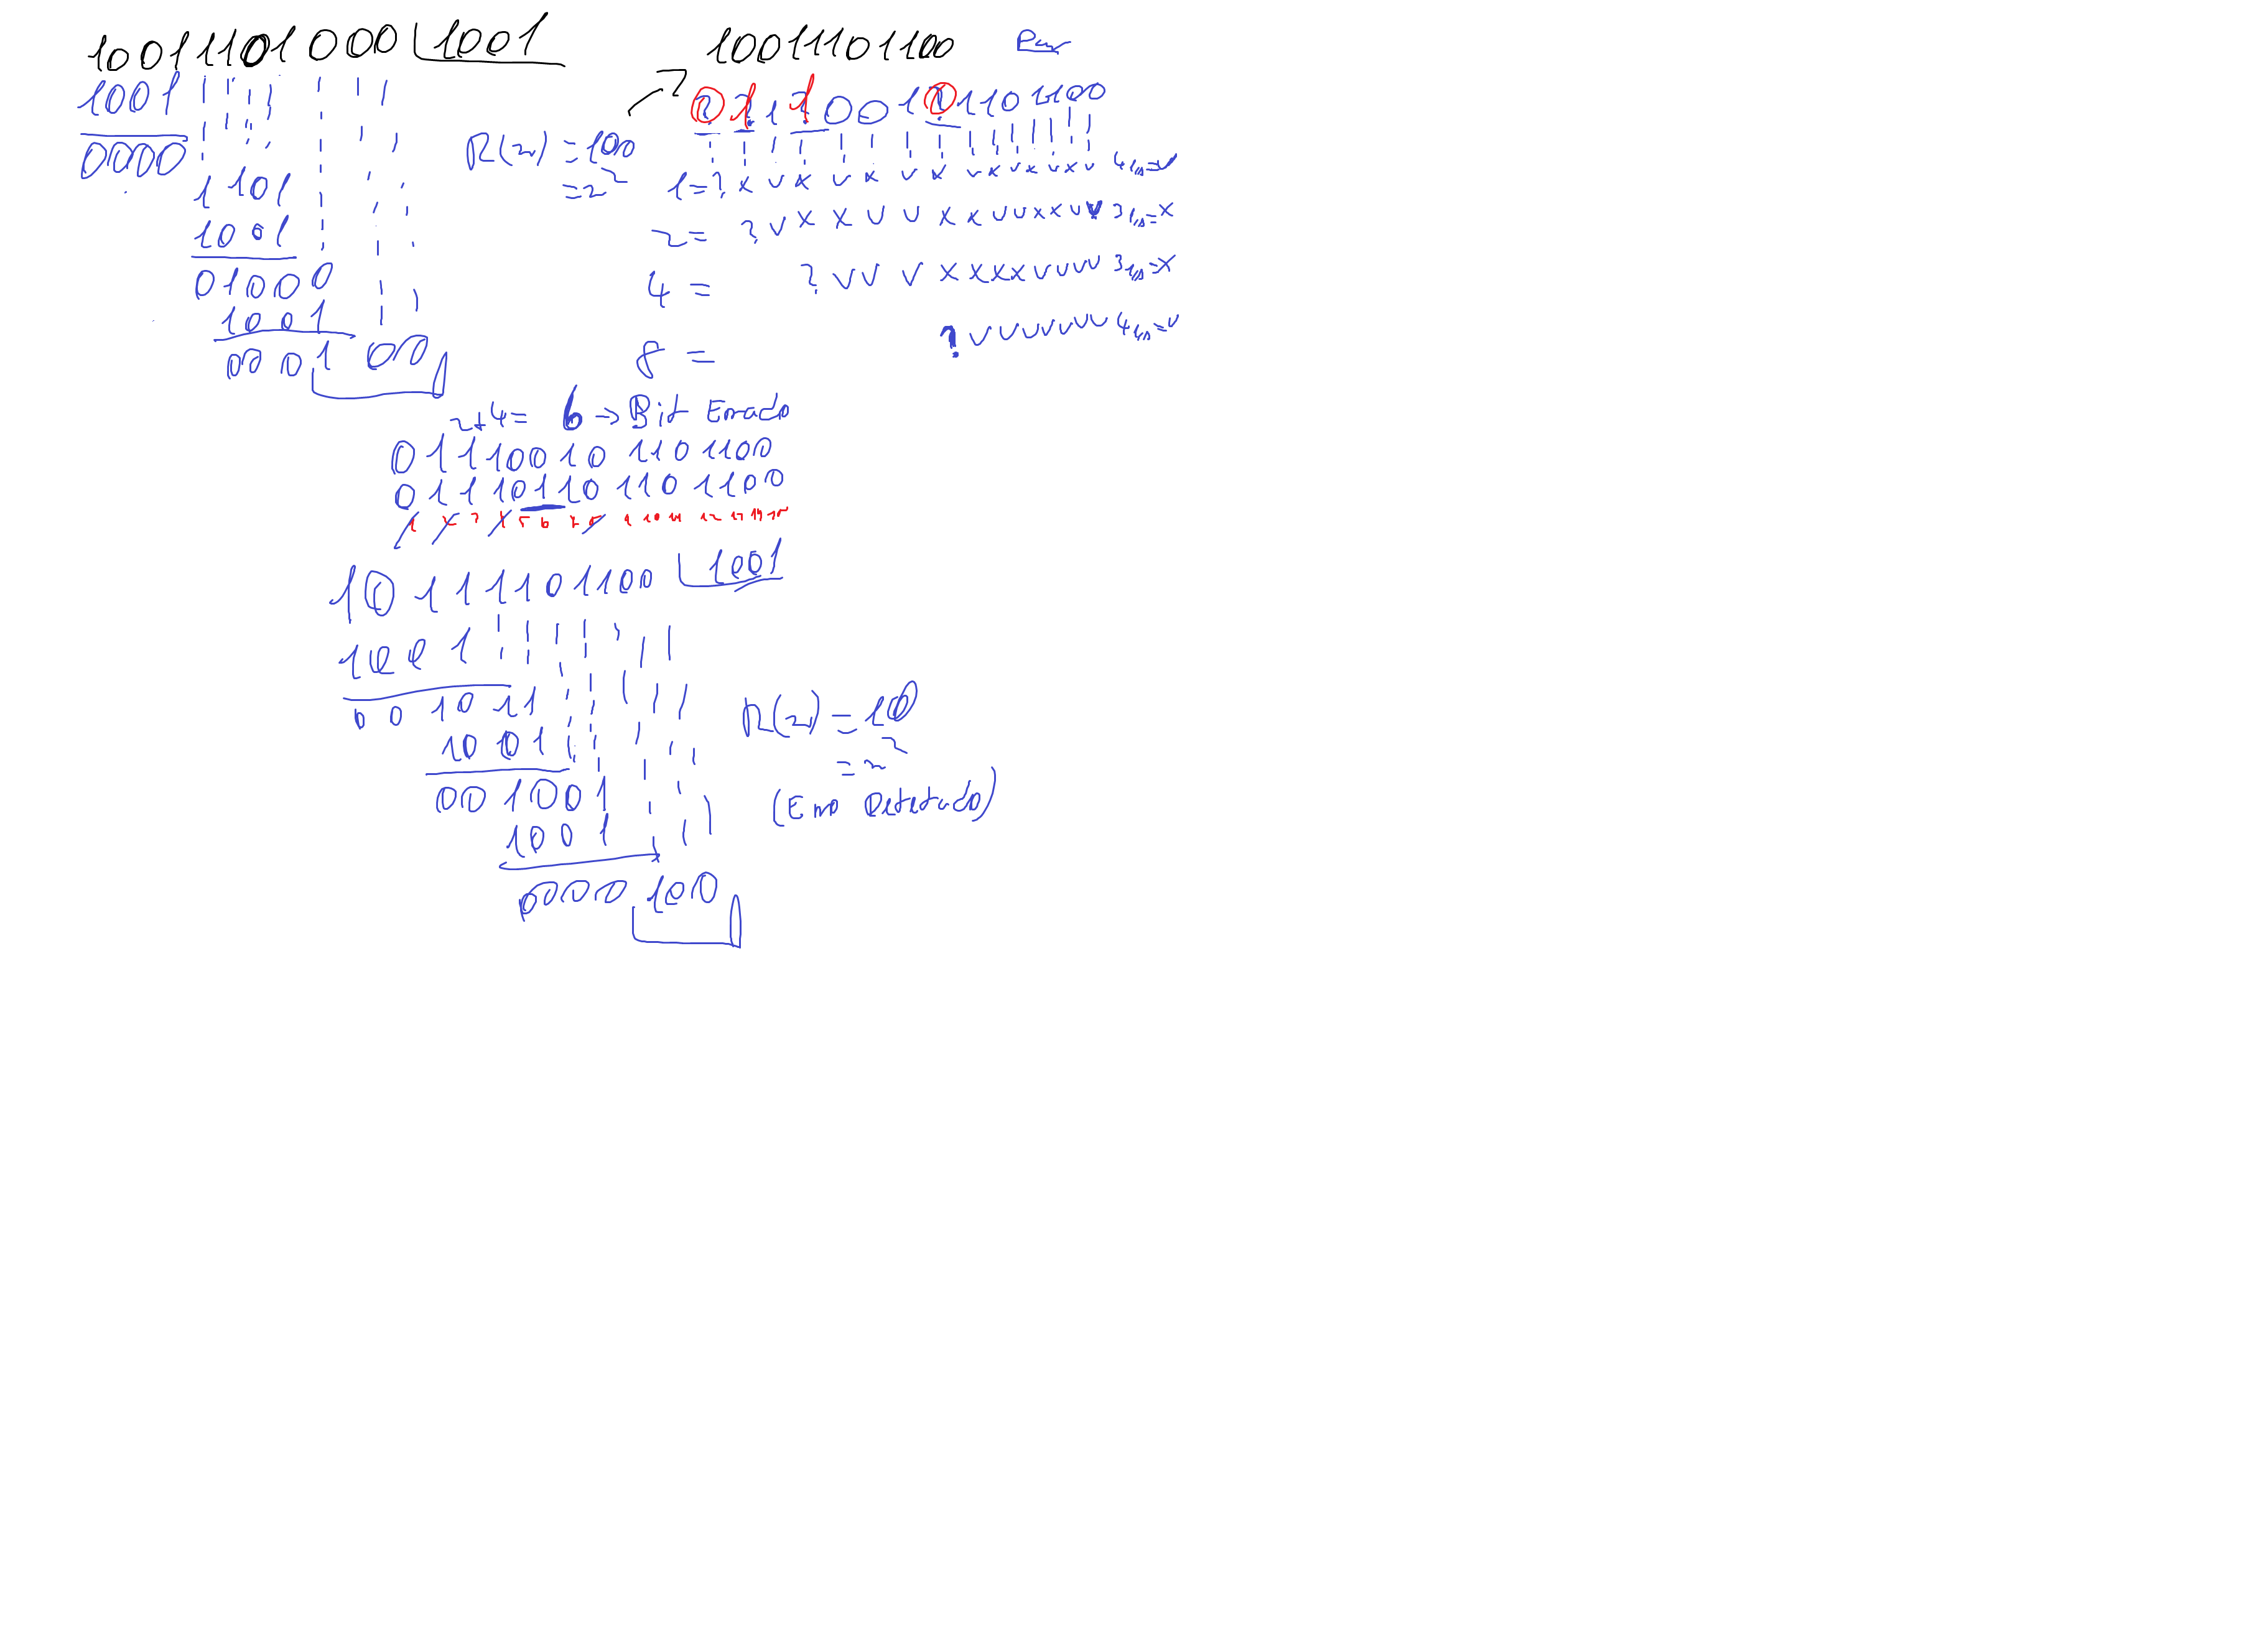 10011101000 | 1001
1001
0000
1101
1001
01000
1001
000100
R(x) = 100
= x²
10011101100 Par
0 1 1 1 0 0 1 0 1 1 0 1 1 0 0
1 = ? x v x v x v x v x v x v x v 4 1's = v
2 = ? v x x v v x x v v x x v v 3 1's = x
4 = ? v v v x x x x v v v v 3 1's = x
8 = ? v v v v v v v 4 1's = v
2+4 = 6 => Bit Errado
01110010 1101100
01110110 1101100
1 2 3 4 5 6 7 8 9 10 11 12 13 14 15
10111101100 | 1001
1001
001011
1001
001001
1001
0000100
R(x) = 100
= x²
(Erro Detetado)